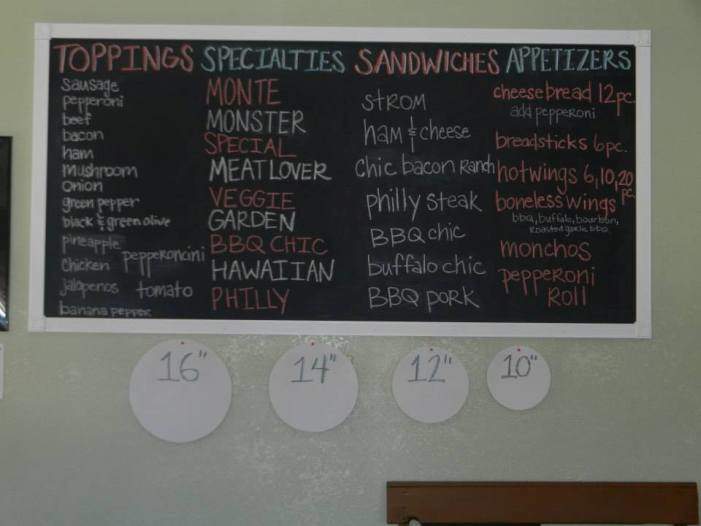 TOPPINGS
sausage
pepperoni
beef
bacon
ham
mushroom
onion
green pepper
black & green olive
pineapple
chicken pepperoncini
jalapenos tomato
banana pepper
SPECIALTIES
MONTE
MONSTER
SPECIAL
MEATLOVER
VEGGIE
GARDEN
BBQ CHIC
HAWAIIAN
PHILLY
SANDWICHES
STROM
ham & cheese
chic bacon Ranch
philly steak
BBQ chic
buffalo chic
BBQ pork
APPETIZERS
cheesebread 12pc.
add pepperoni
breadsticks 6pc.
hotwings 6,10,20
pc.
boneless wings
bbq, buffalo, bourbon,
Roasted garlic bbq
monchos
pepperoni
Roll
16"
14"
12"
10"